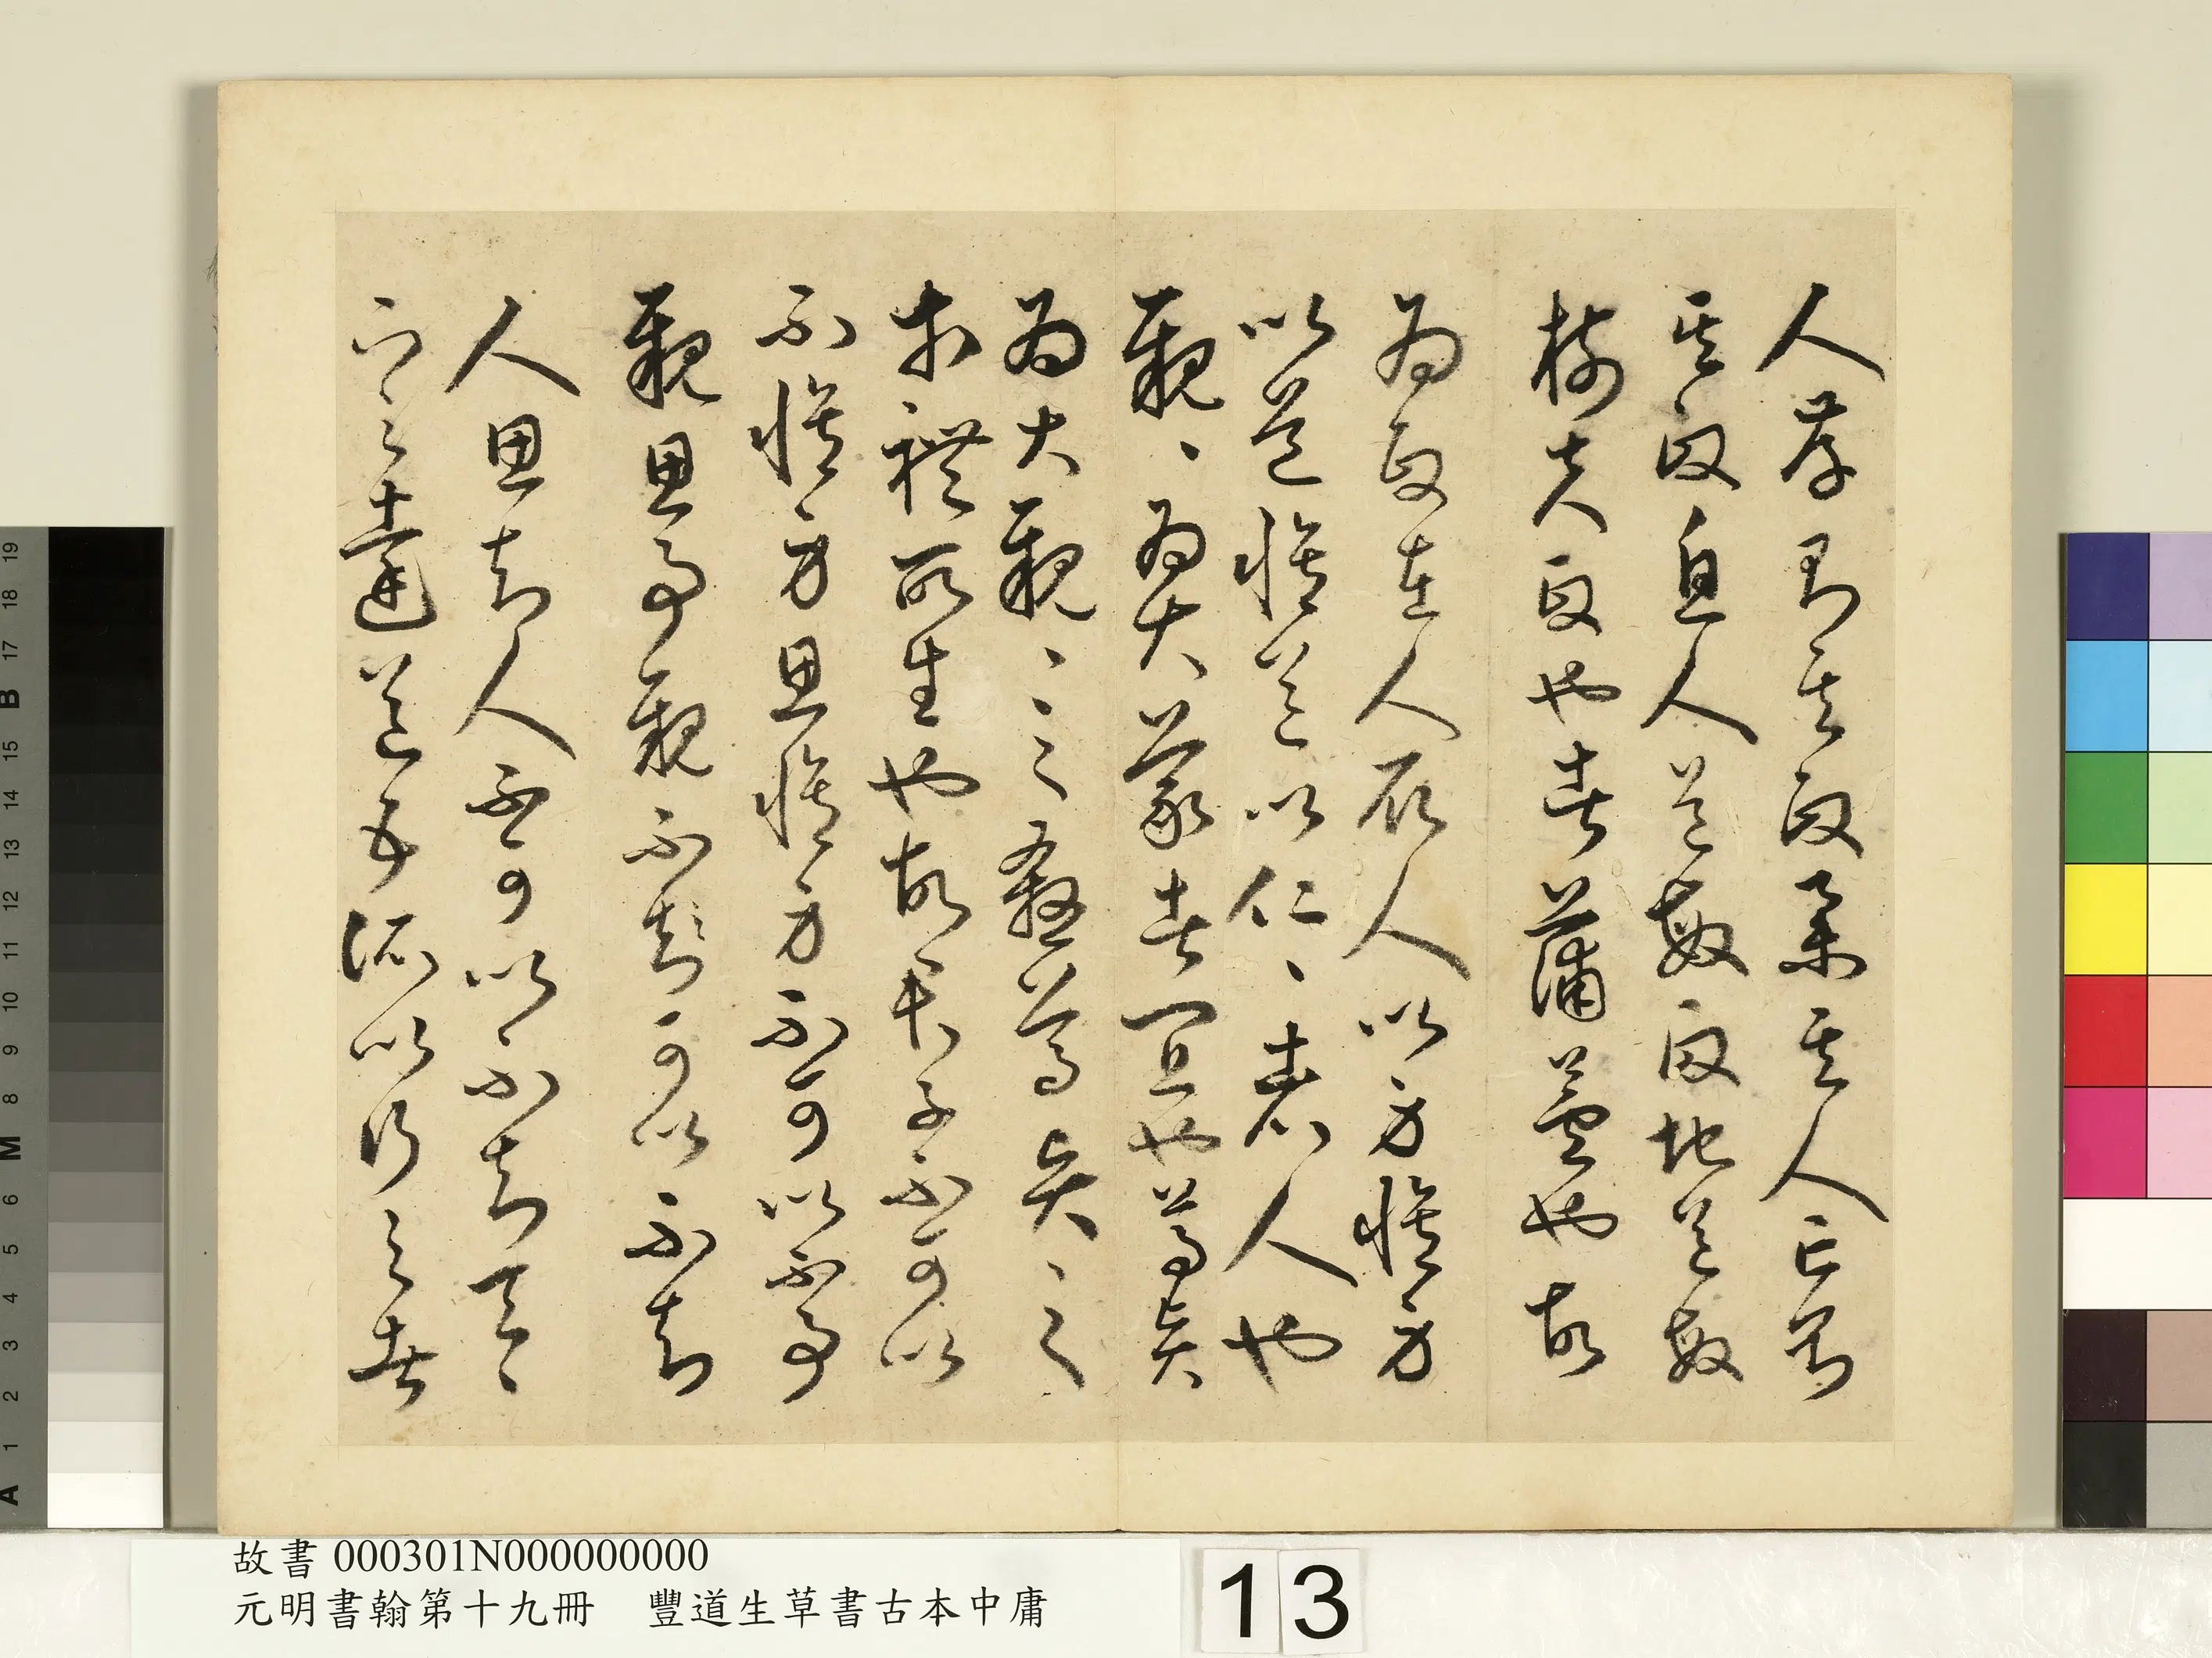 人存則其政舉其人亡則
其政息人道敏政地道敏
樹夫政也者蒲蘆也故
為政在人取人以身脩身
以道脩道以仁、者人也
親、為大義者宜也尊賢
為大親、之殺尊賢、之
等禮所生也故君子不可以
不脩身思脩身不可以不事
親思事親不知可以不知
人思知人不可以不知天、
下之達道五所以行之者
故書 000301N000000000
元明書翰第十九冊　豐道生草書古本中庸
13
A 1 2 3 4 5 6 M 8 9 10 11 12 13 14 15 B 17 18 19